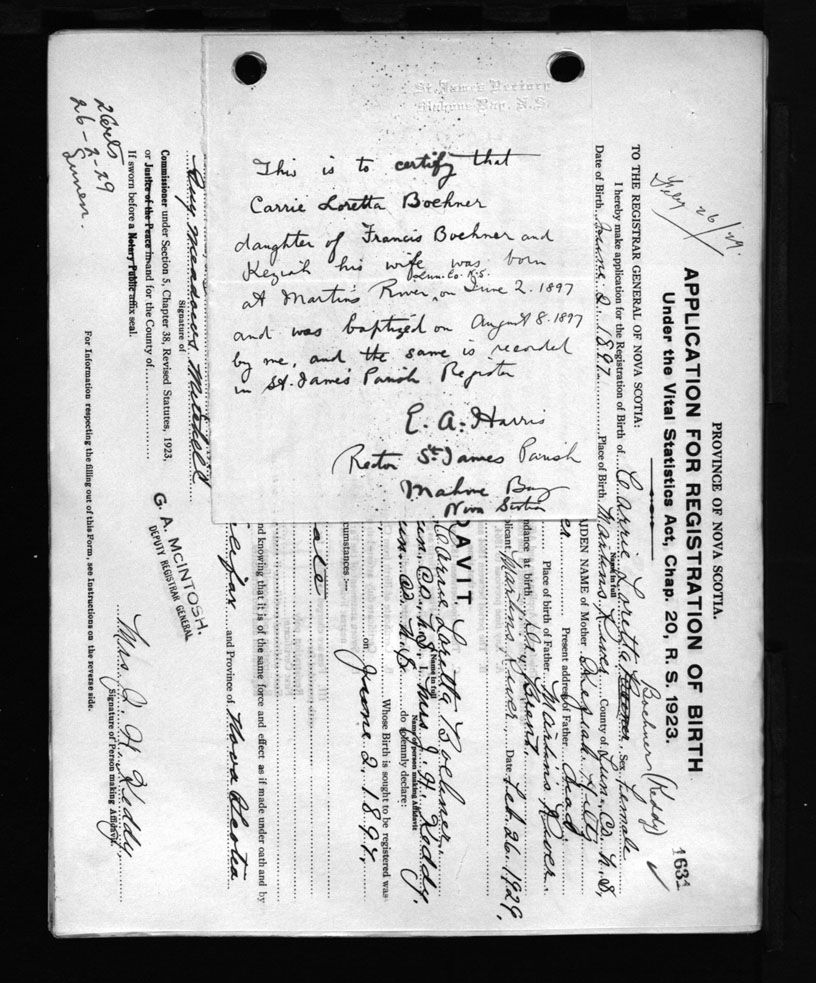 St. James Rectory
Mahone Bay, N.S.
This is to certify that
Carrie Loretta Boehner
daughter of Francis Boehner and
Keziah his wife was born
Lun. Co. N.S.
at Martin's River, on June 2. 1897
and was baptized on August 8. 1897
by me, and the same is recorded
in St. James Parish Register
E. A. Harris
Rector St. James Parish
Mahone Bay
Nova Scotia
PROVINCE OF NOVA SCOTIA.
APPLICATION FOR REGISTRATION OF BIRTH
Under the Vital Statistics Act, Chap. 20, R. S. 1923.
163A
Feby 26/29.
Boehner (Keddy)
TO THE REGISTRAR GENERAL OF NOVA SCOTIA:
I hereby make application for the Registration of Birth of Carrie Loretta Sex female
Name in full
Date of Birth June 2. 1897. Place of Birth Martins River County of Lun. Co. N.S.
AIDEN NAME of Mother Kesiah Hiltz
er Present address of Father. Dead
Place of birth of Father Martins River.
ndance at birth
plicant. Martins River Date Feb. 26. 1929.
DAVIT
Carrie Loretta Boehner.
Name in full
un. Co. N.S. I. Mrs J. H. Keddy.
Name of person making Affidavit
un. Co. N.S. do solemnly declare:
Whose Birth is sought to be registered was
on June 2. 1897.
cumstances :—
nd knowing that it is of the same force and effect as if made under oath and by
lifax and Province of Nova Scotia
Guy Meadows Mitchell
Signature of
Commissioner under Section 5, Chapter 38, Revised Statutes, 1923,
or Justice of the Peace in and for the County of
If sworn before a Notary Public affix seal.
G. A. McINTOSH.
DEPUTY REGISTRAR GENERAL
Mrs. J. H. Keddy
Signature of Person making Affidavit.
For Information respecting the filling out of this Form, see Instructions on the reverse side.
26-2-29